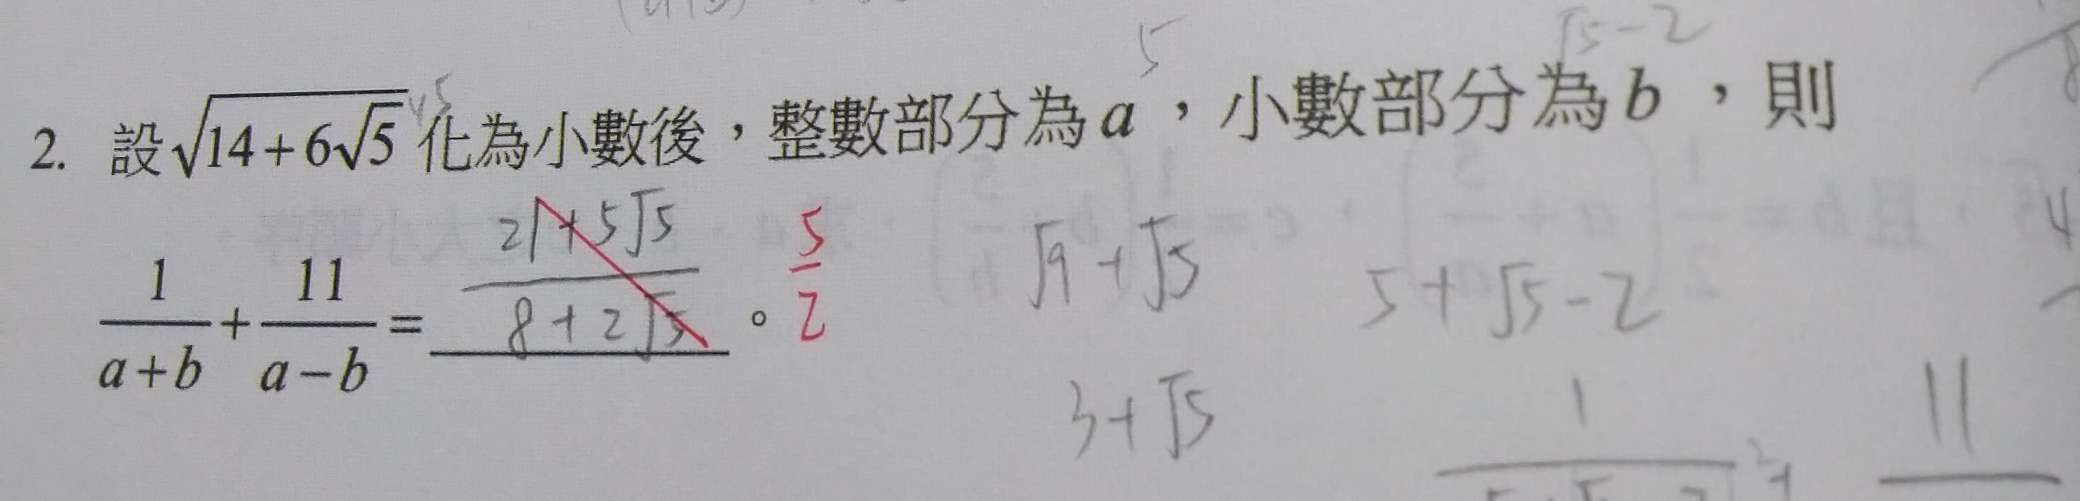 5 √5-2
2. 設√(14+6√5) 化為小數後，整數部分為a，小數部分為b，則
1/(a+b) + 11/(a-b) = (21+5√5)/(8+2√5) 。 5/2
√9+√5 5+√5-2
3+√5
1 11